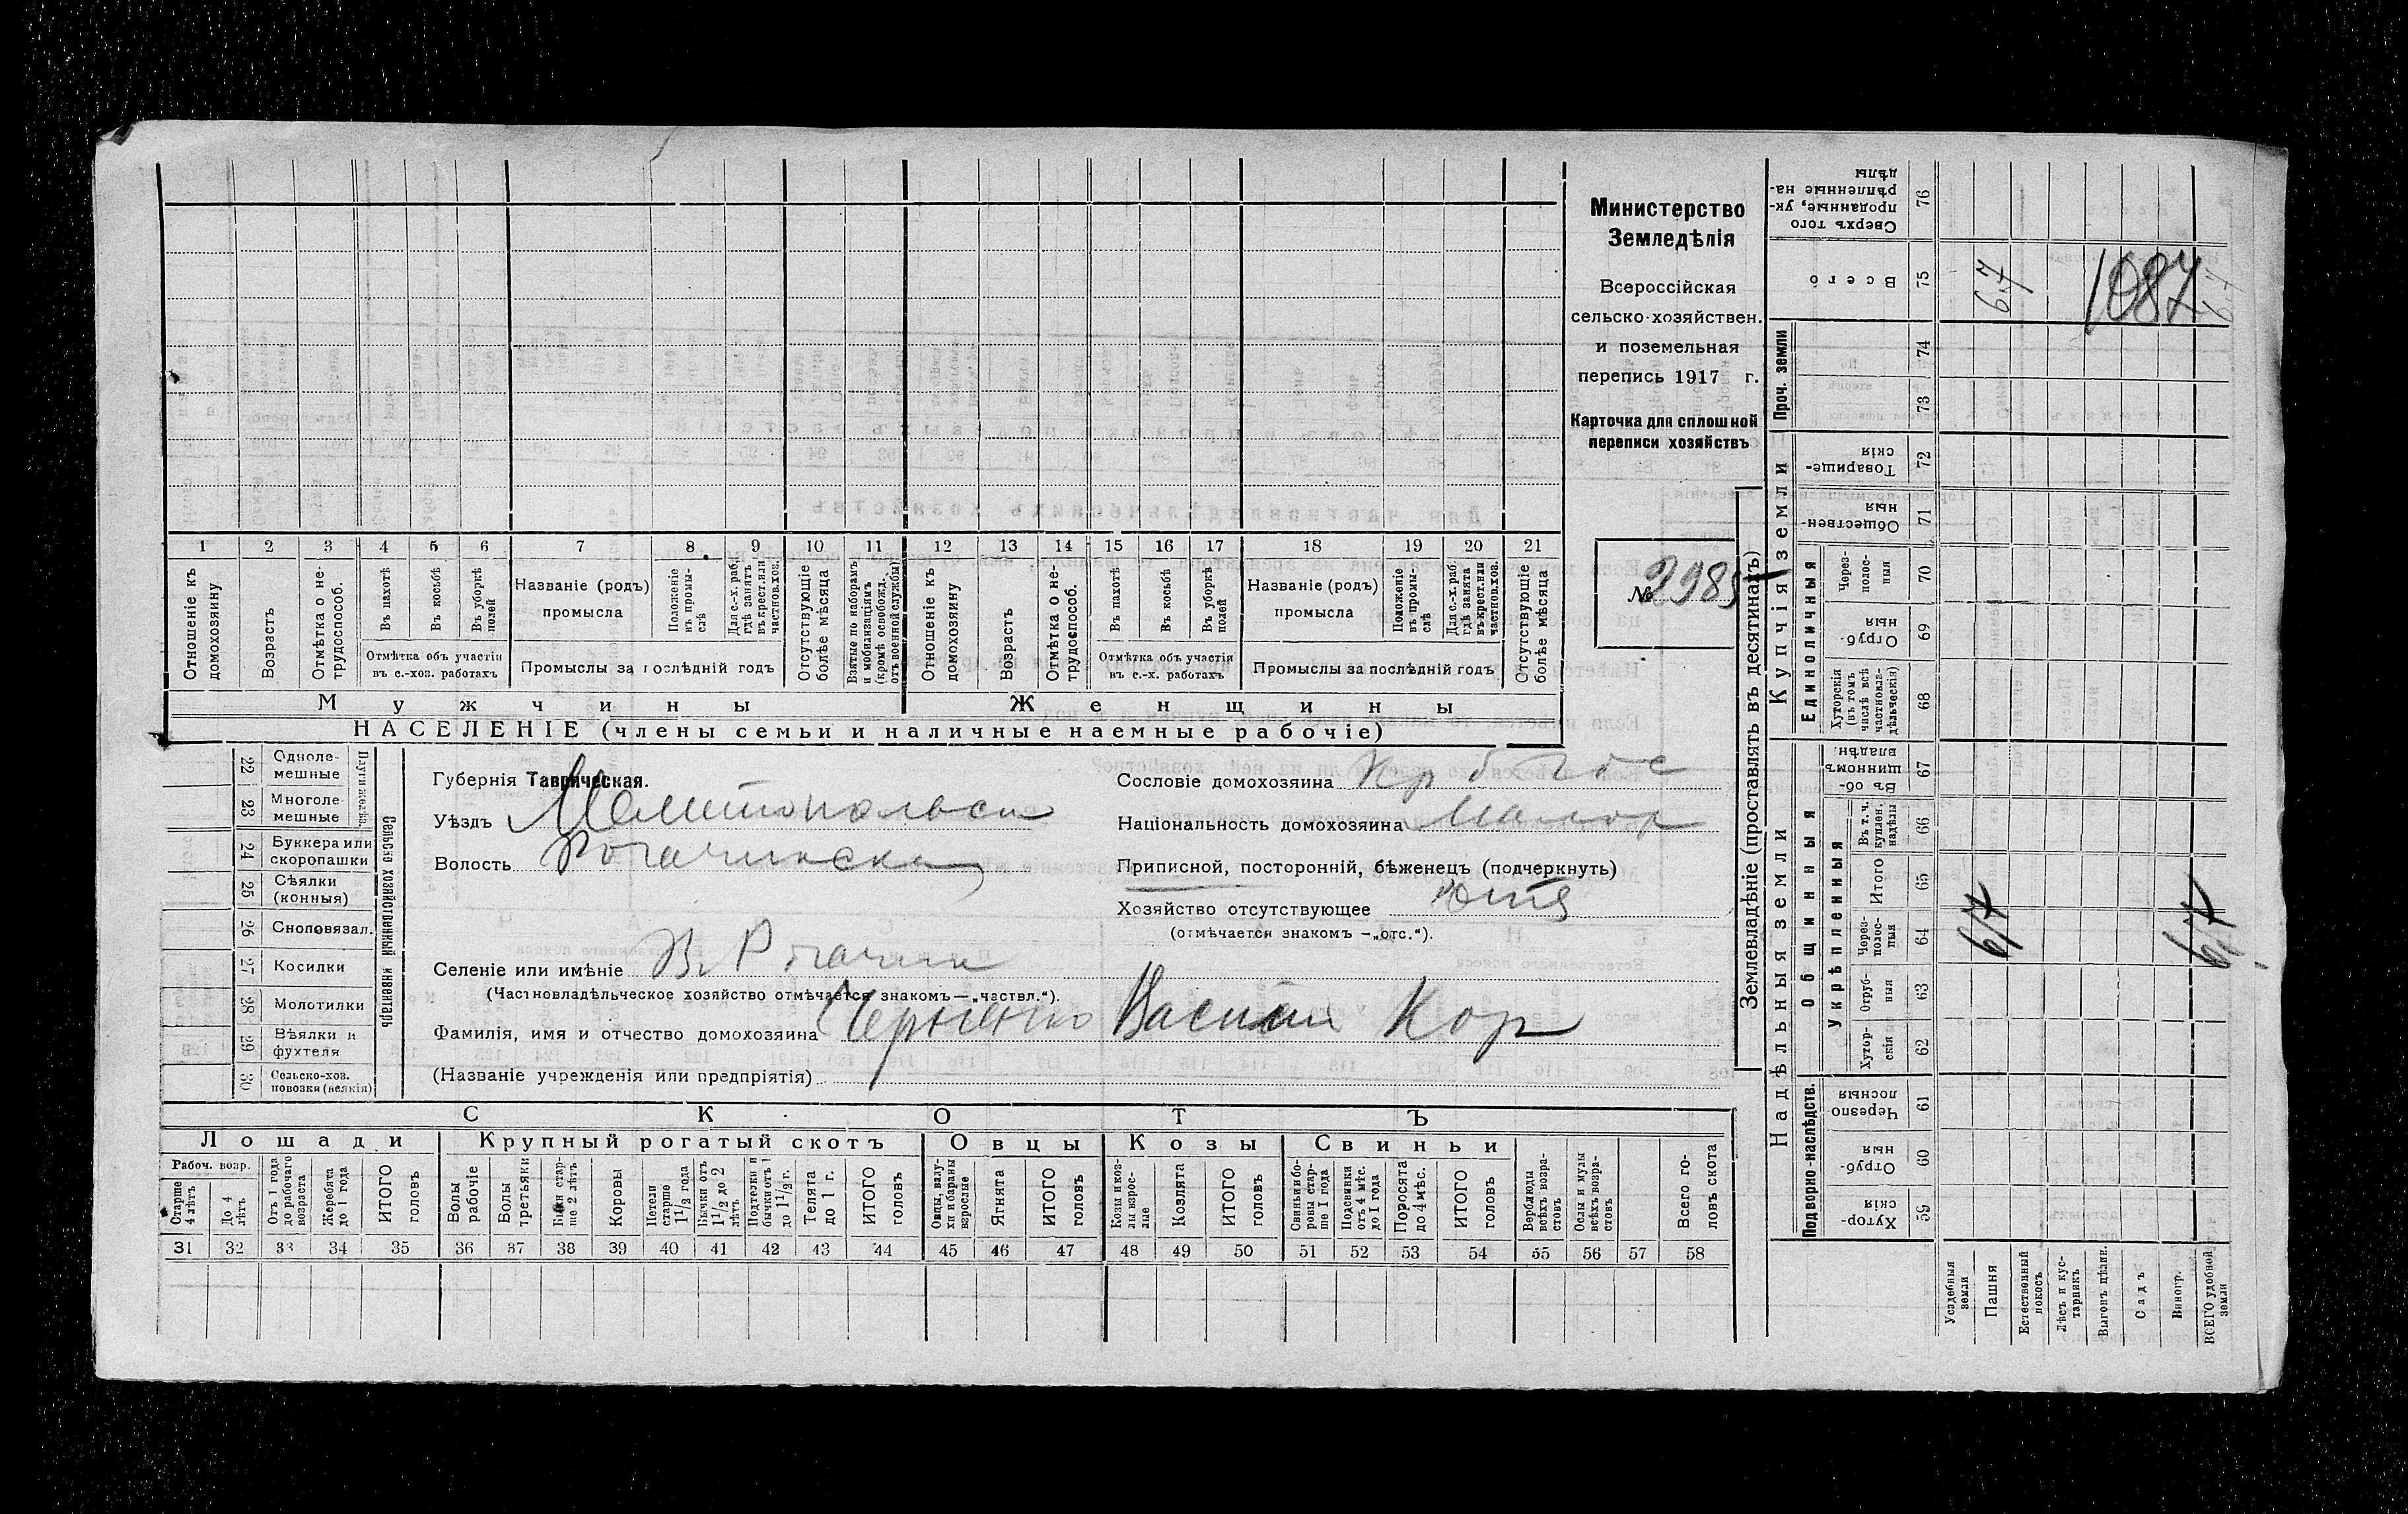 Министерство
Земледѣлія
Всероссійская
сельско-хозяйствен.
и поземельная
перепись 1917 г.
Карточка для сплошной
переписи хозяйствъ
№ 2985
1 2 3 4 5 6 7 8 9 10 11 12 13 14 15 16 17 18 19 20 21
Отношеніе къ домохозяину
Возрастъ
Отмѣтка о не-трудоспособ.
Въ пахотѣ
Въ косьбѣ
Въ уборкѣ полей
Отмѣтка объ участіи въ с.-хоз. работахъ
Названіе (родъ) промысла
Положеніе въ промы-слѣ
Для с.-х. раб., гдѣ занятъ въ крест. или частнов. хоз.
Промыслы за послѣдній годъ
Отсутствующіе болѣе мѣсяца
Взятые по наборамъ и мобилизаціямъ (кромѣ освобожд. отъ военной службы)
Отношеніе къ домохозяину
Возрастъ
Отмѣтка о не-трудоспособ.
Въ пахотѣ
Въ косьбѣ
Въ уборкѣ полей
Отмѣтка объ участіи въ с.-х. работахъ
Названіе (родъ) промысла
Положеніе въ промы-слѣ
Для с.-х. раб. гдѣ занята въ крест. или частнов. хоз.
Промыслы за послѣдній годъ
Отсутствующіе болѣе мѣсяца
Мужчины Женщины
НАСЕЛЕНІЕ (члены семьи и наличные наемные рабочіе)
22 Одноле-мешные
23 Многоле-мешные
24 Буккера или скоропашки
25 Сѣялки (конныя)
26 Сноповязал.
27 Косилки
28 Молотилки
29 Вѣялки и фухтеля
30 Сельско-хоз. повозки (всякія)
Сельско хозяйственный инвентарь
Губернія Таврическая.
Уѣздъ Мелитопольск
Волость Рогачинская
Селеніе или имѣніе В. Рогачик
(Частновладѣльческое хозяйство отмѣчается знакомъ—„частвл.“).
Фамилія, имя и отчество домохозяина Василий Кор
(Названіе учрежденія или предпріятія)
Сословіе домохозяина
Національность домохозяина Малор
Приписной, посторонній, бѣженецъ (подчеркнуть)
Хозяйство отсутствующее
(отмѣчается знакомъ —„отс.“).
СКОТЪ
Лошади Крупный рогатый скотъ Овцы Козы Свиньи
Рабоч. возр.
Старше 4 лѣтъ
До 4 лѣтъ
Отъ 1 года до рабочаго возраста
Жеребята до 1 года
ИТОГО головъ
Волы рабочіе
Волы третьяки
Быки стар-ше 2 лѣтъ
Коровы
Нетели старше 1 1/2 года
Бычки отъ 1 1/2 до 2 лѣтъ
Подтелки и бычки отъ 1 до 1 1/2 г.
Телята до 1 г.
ИТОГО головъ
Овцы, валу-хи и бараны взрослые
Ягнята
ИТОГО головъ
Козы и коз-лы взрос-лые
Козлята
ИТОГО головъ
Свиньи и бо-ровы стар-ше 1 года
Подсвинки отъ 4 мѣс. до 1 года
Поросята до 4 мѣс.
ИТОГО головъ
Верблюды всѣхъ возра-стовъ
Ослы и мулы всѣхъ возра-стовъ
Всего го-ловъ скота
31 32 33 34 35 36 37 38 39 40 41 42 43 44 45 46 47 48 49 50 51 52 53 54 55 56 57 58
Землевладѣніе (проставлять въ десятинахъ)
Надѣльныя земли Купчія земли Проч. земли
Подворно-наслѣдств. Общинныя Единоличныя
Укрѣпленныя
59 Хутор-скія
60 Отруб-ныя
61 Черезпо лосныя
62 Хутор-скія
63 Отруб-ныя
64 Через-полос-ныя
65 Итого
66 Въ т. ч. куплен. надѣлы
67 Въ об-щинномъ владѣн.
68 Хуторскія (въ томъ числѣ всѣ частновла-дѣльческія)
69 Отруб-ныя
70 Через-полос-ныя
71 Обществен-ныя
72 Товарище-скія
73
74
75 Всего
76 Сверхъ того проданные, ук-рѣпленные на-дѣлы
Усадебныя земли
Пашня
Естественный покосъ
Лѣсъ и кус-тарникъ
Выгонъ цѣлин.
Садъ
Виногр.
ВСЕГО удобной земли
1087